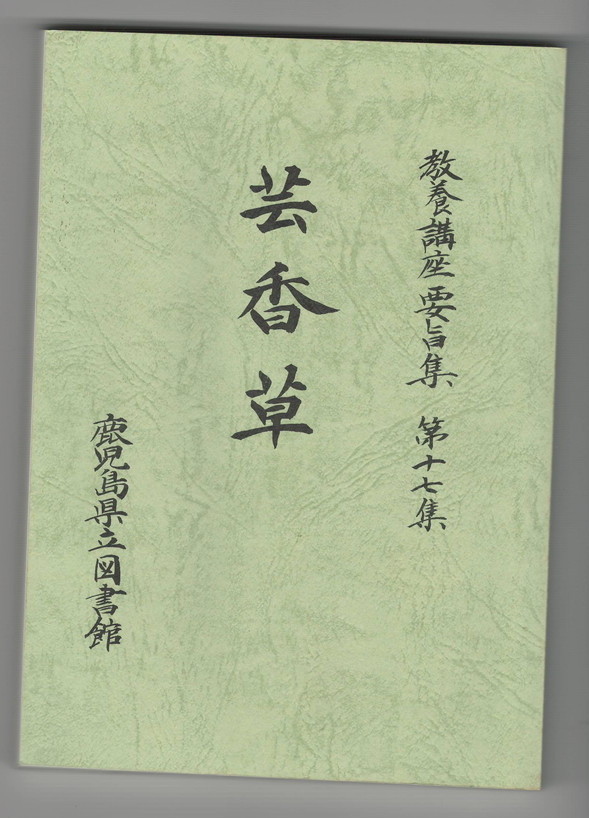 教養講座要旨集　第十七集
芸香草
鹿児島県立図書館